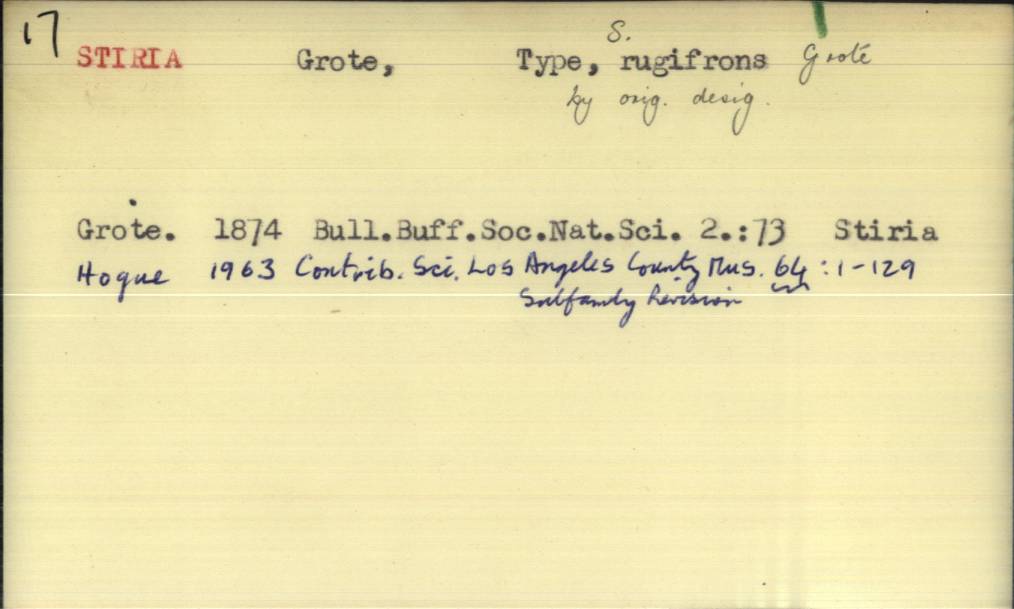 17
STIRIA Grote, Type, S. rugifrons Grote
by orig. desig.
Grote. 1874 Bull.Buff.Soc.Nat.Sci. 2.:73 Stiria
Hogue 1963 Contrib. Sci. Los Angeles County Mus. 64:1-129
Subfamily Revision